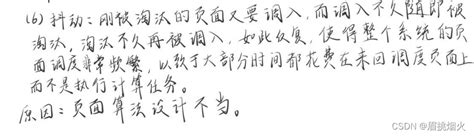 (6) 抖动：刚被淘汰的页面又要调入，而调入不久随即被
淘汰，淘汰不久再被调入，如此反复，使得整个系统的页
面调度非常频繁，以致于大部分时间都花费在来回调度页面上
而不是执行计算任务。
原因：页面算法设计不当。
CSDN @眉挑烟火